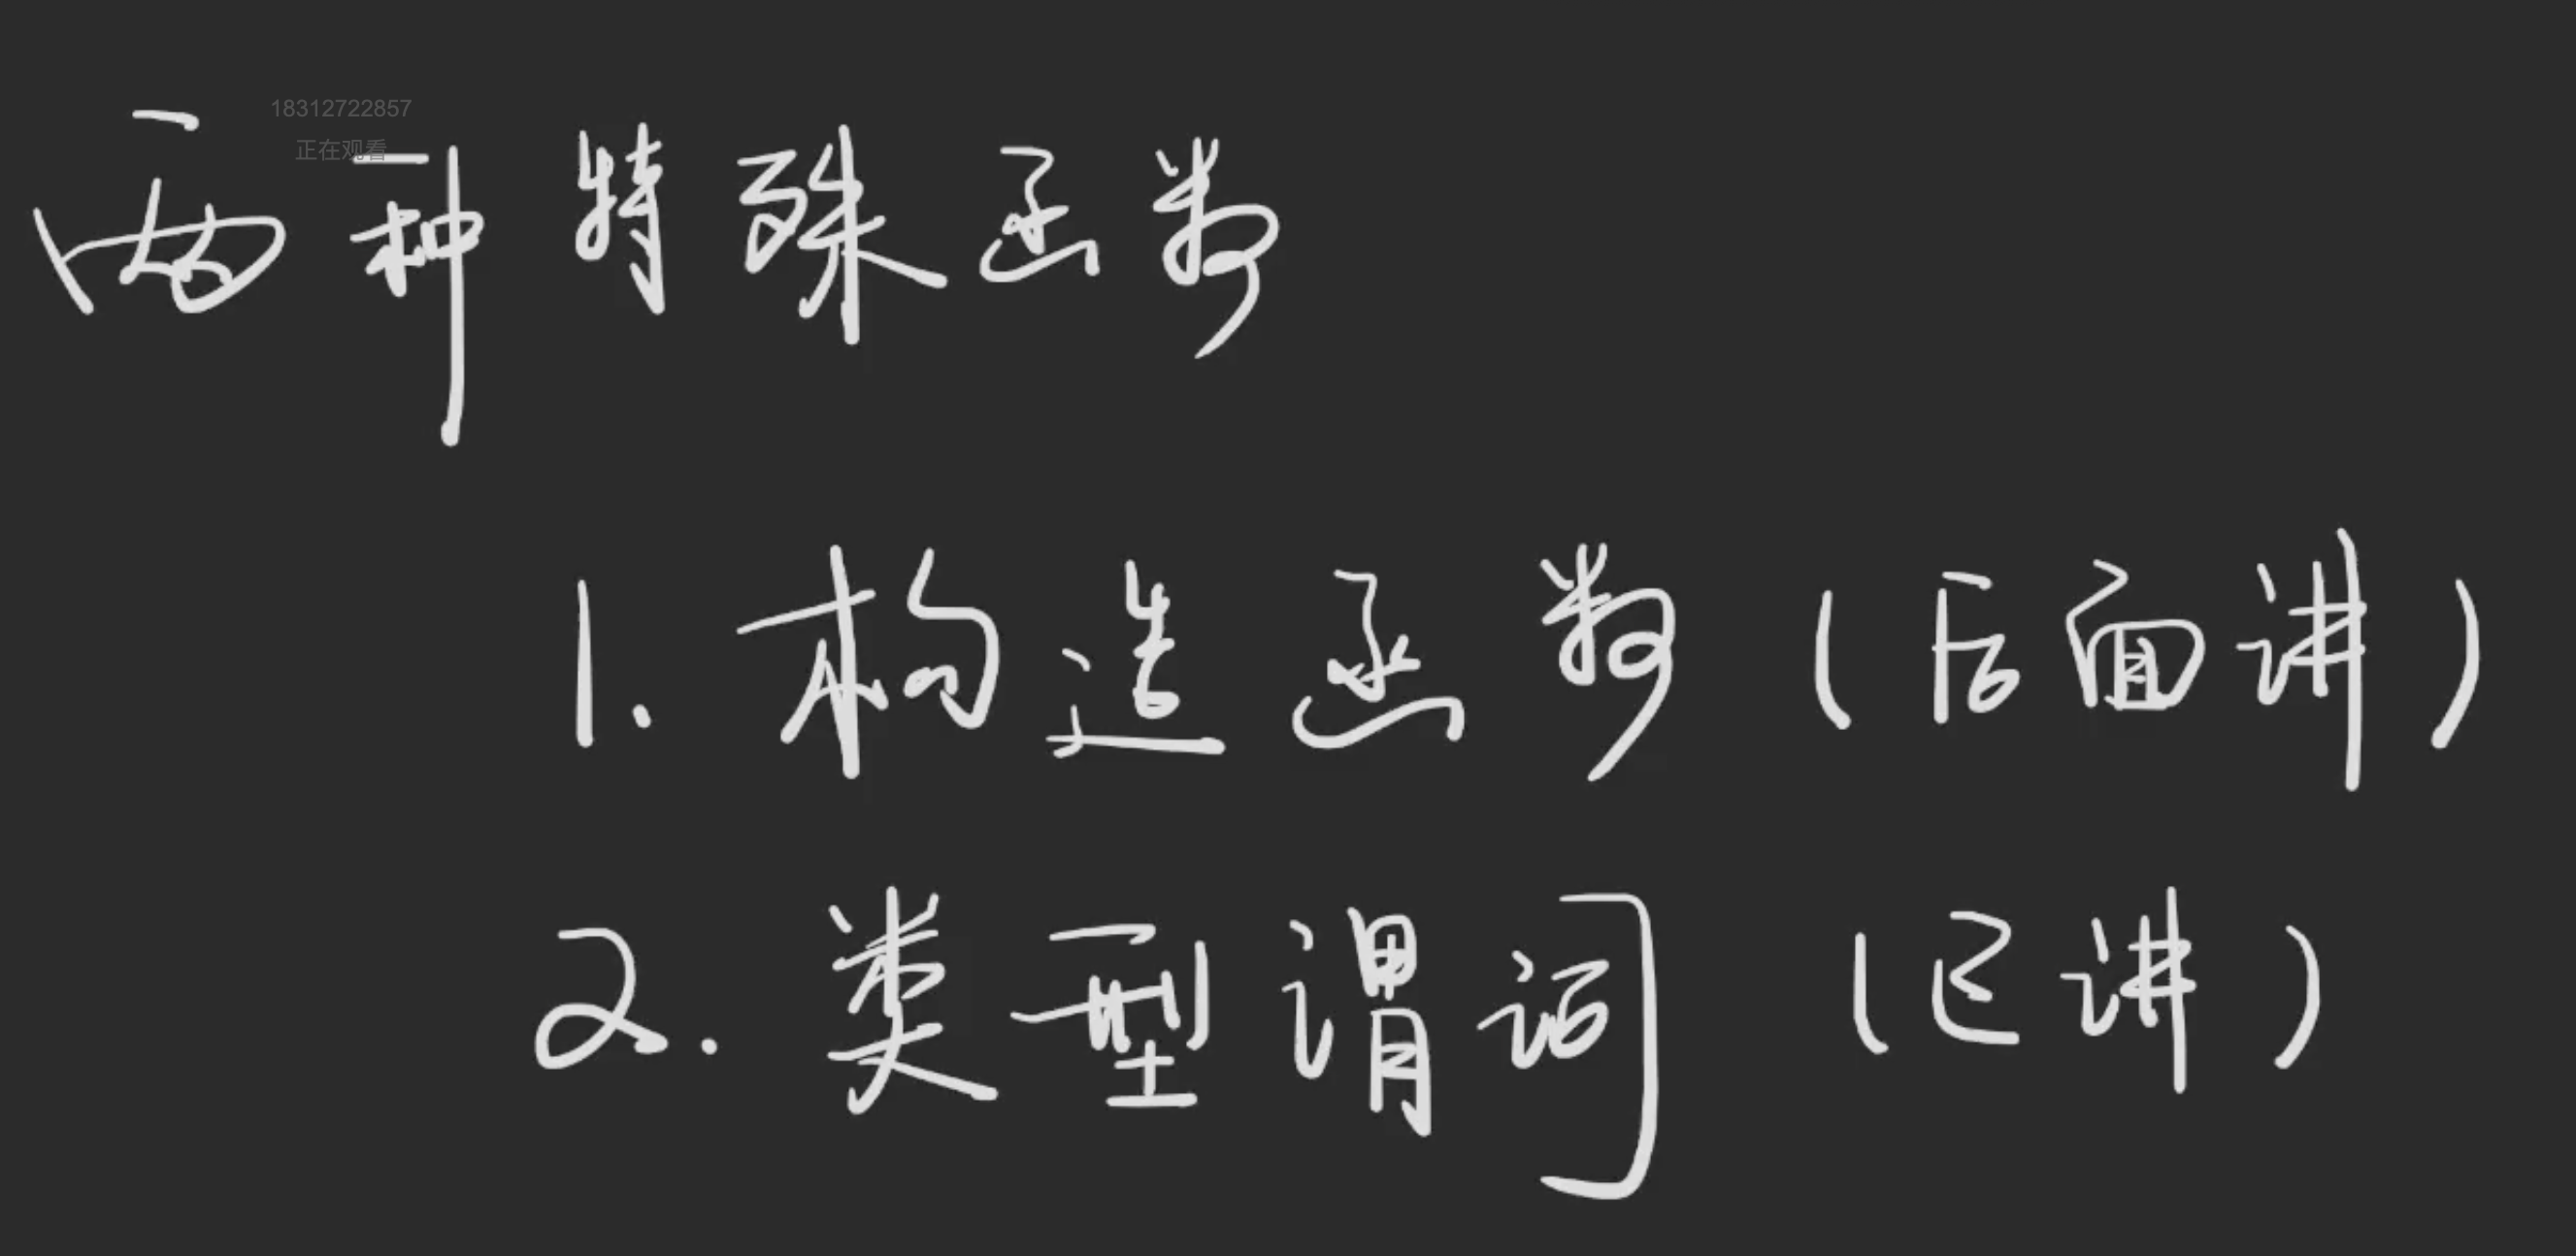 18312722857
正在观看
两种特殊函数
1. 构造函数（后面讲）
2. 类型谓词（已讲）